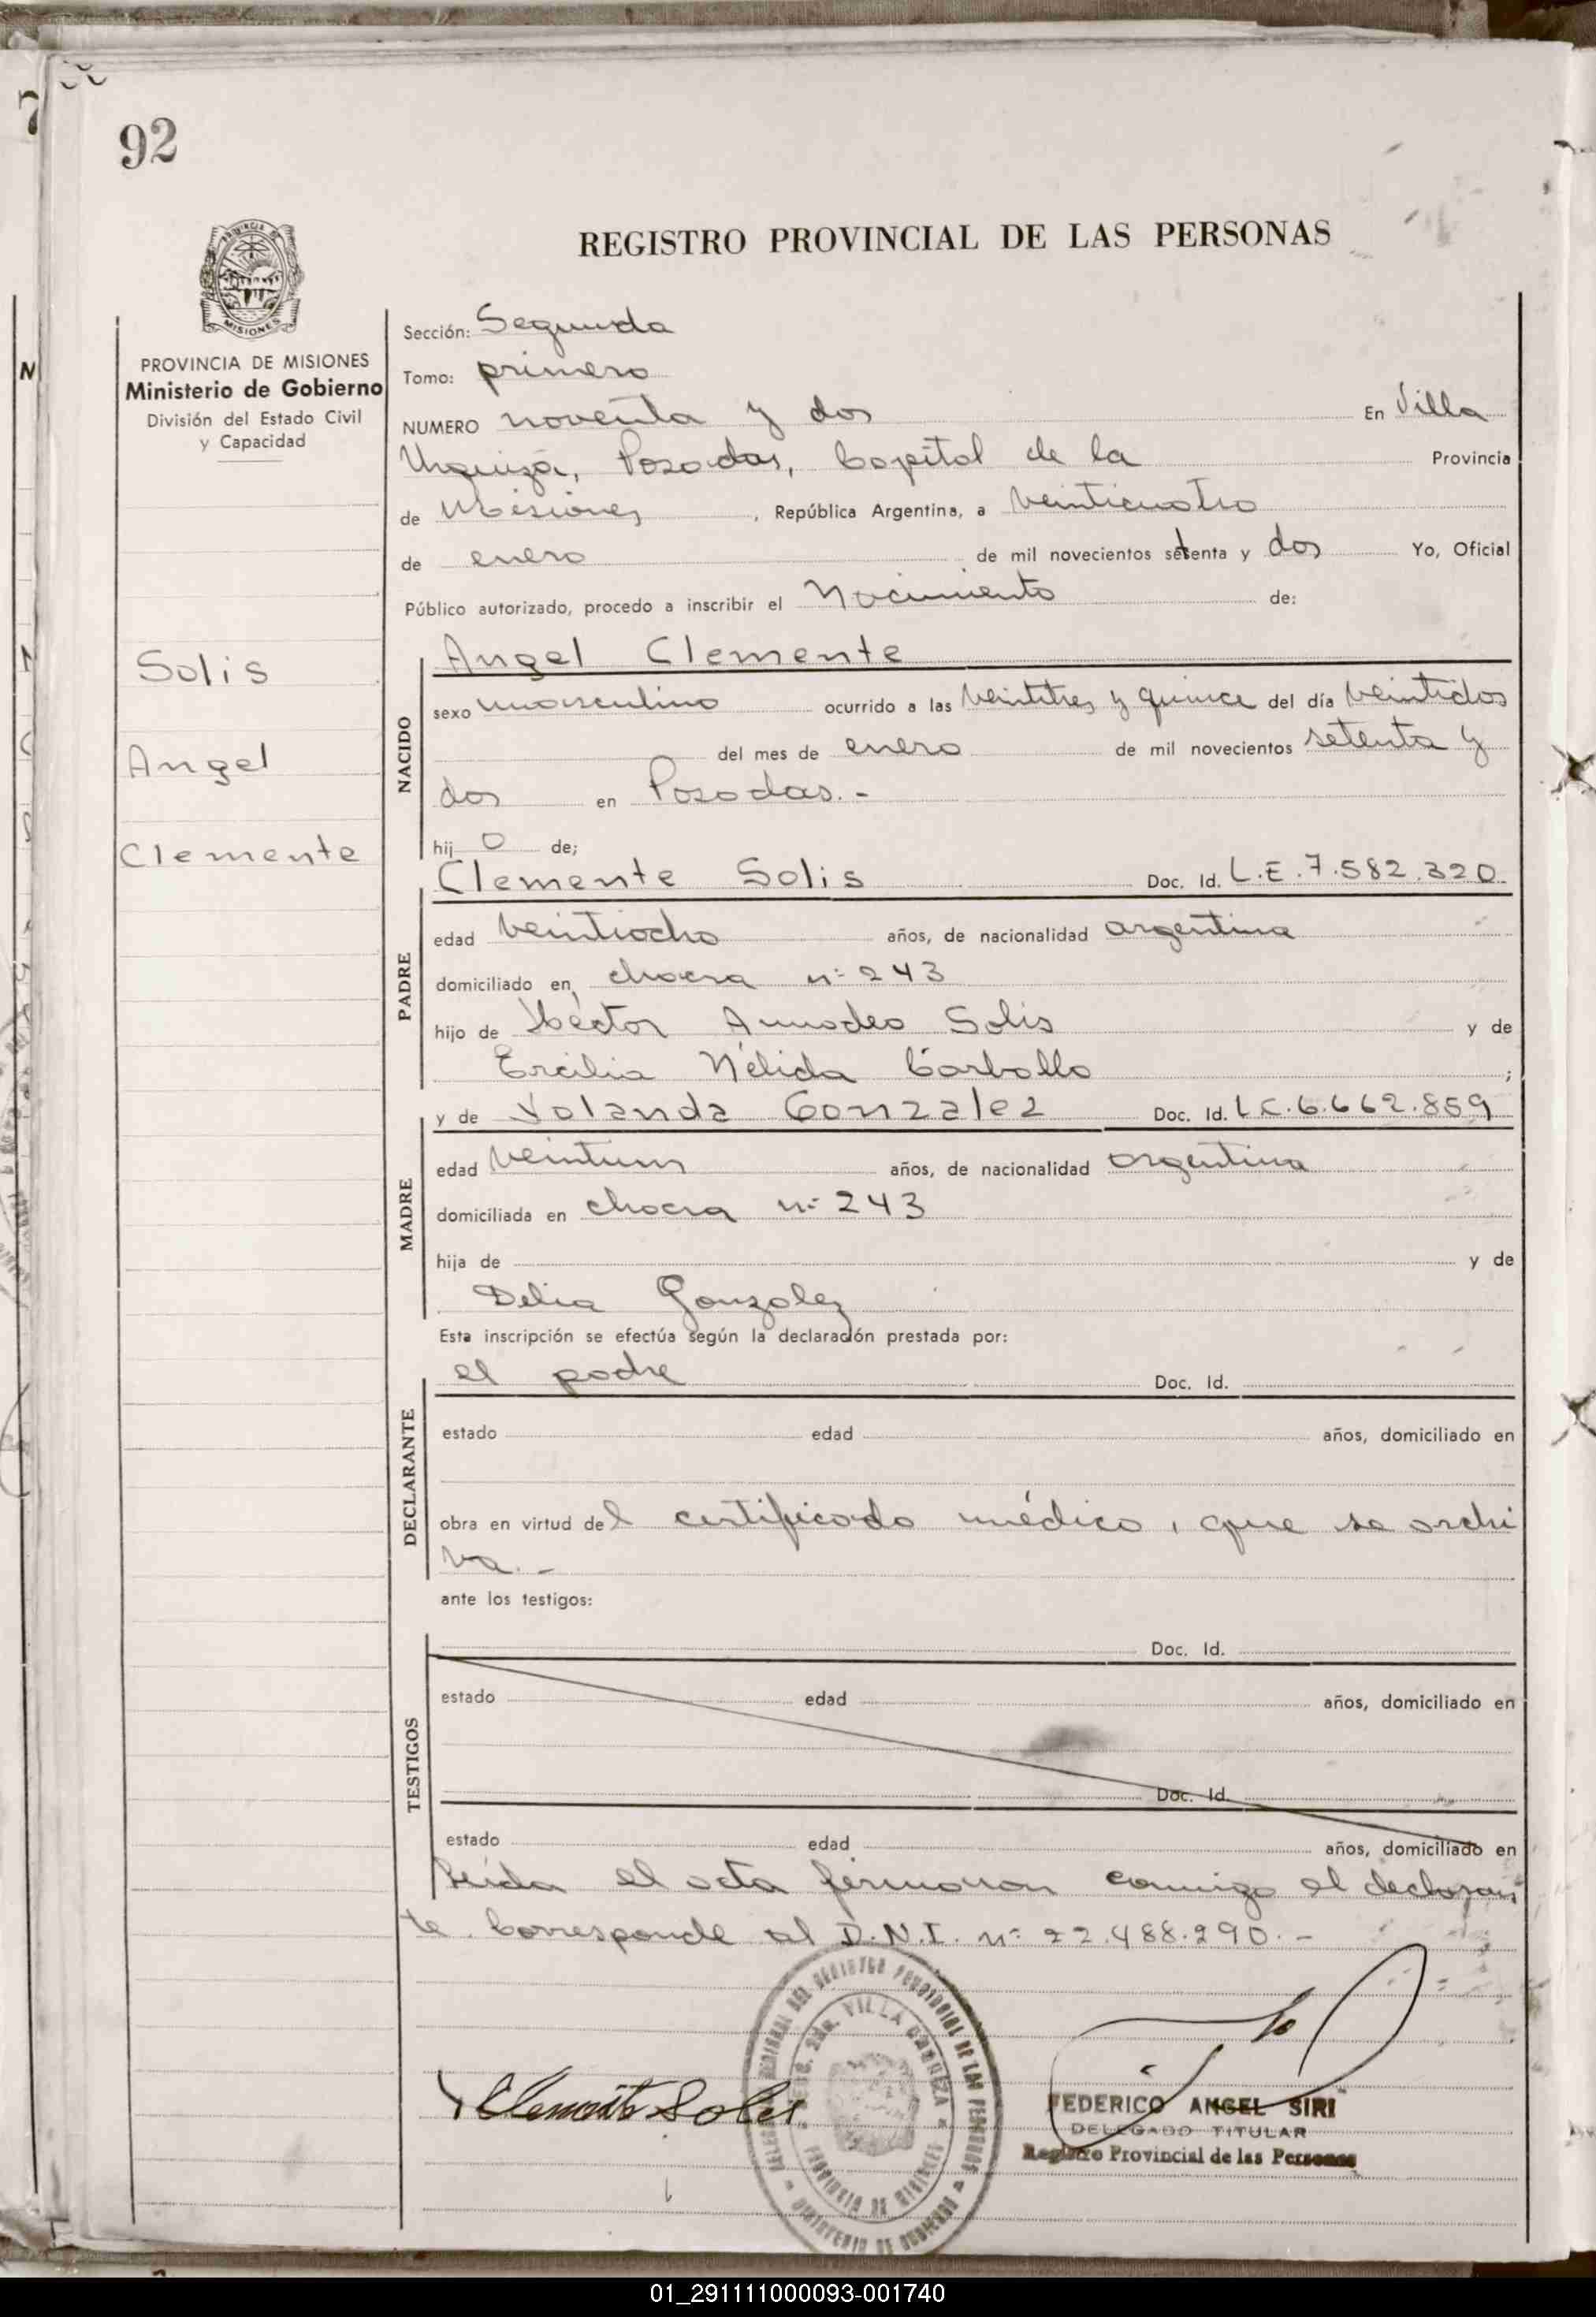 92
REGISTRO PROVINCIAL DE LAS PERSONAS
MISIONES
PROVINCIA DE MISIONES
Ministerio de Gobierno
División del Estado Civil
y Capacidad
Solis
Angel
Clemente
Sección: Segunda
Tomo: primero
NUMERO noventa y dos En Villa
Urquiza, Posadas, Capital de la Provincia
de Misiones, República Argentina, a veinticuatro
de enero de mil novecientos setenta y dos Yo, Oficial
Público autorizado, procedo a inscribir el Nacimiento de:
NACIDO
Angel Clemente
sexo masculino ocurrido a las veintitres y quince del día veintidos
del mes de enero de mil novecientos setenta y
dos en Posadas.-
hijo de;
PADRE
Clemente Solis Doc. Id. L.E. 7.582.320
edad veintiocho años, de nacionalidad argentina
domiciliado en chacra nº 243
hijo de Héctor Amadeo Solis y de
Ercilia Nélida Carballo ;
MADRE
y de Yolanda Gonzalez Doc. Id. L.C. 6.662.859
edad veintiun años, de nacionalidad argentina
domiciliada en chacra nº 243
hija de y de
Delia Gonzalez
Esta inscripción se efectúa según la declaración prestada por:
DECLARANTE
el padre Doc. Id.
estado edad años, domiciliado en
obra en virtud del certificado médico, que se archi
va.-
ante los testigos:
TESTIGOS
Doc. Id.
estado edad años, domiciliado en
Doc. Id.
estado edad años, domiciliado en
Leída el acta firmaron conmigo el declaran
te. Corresponde al D.N.I. nº 22.488.290.-
Clemente Solis
FEDERICO ANGEL SIRI
DELEGADO TITULAR
Registro Provincial de las Personas
01_291111000093-001740